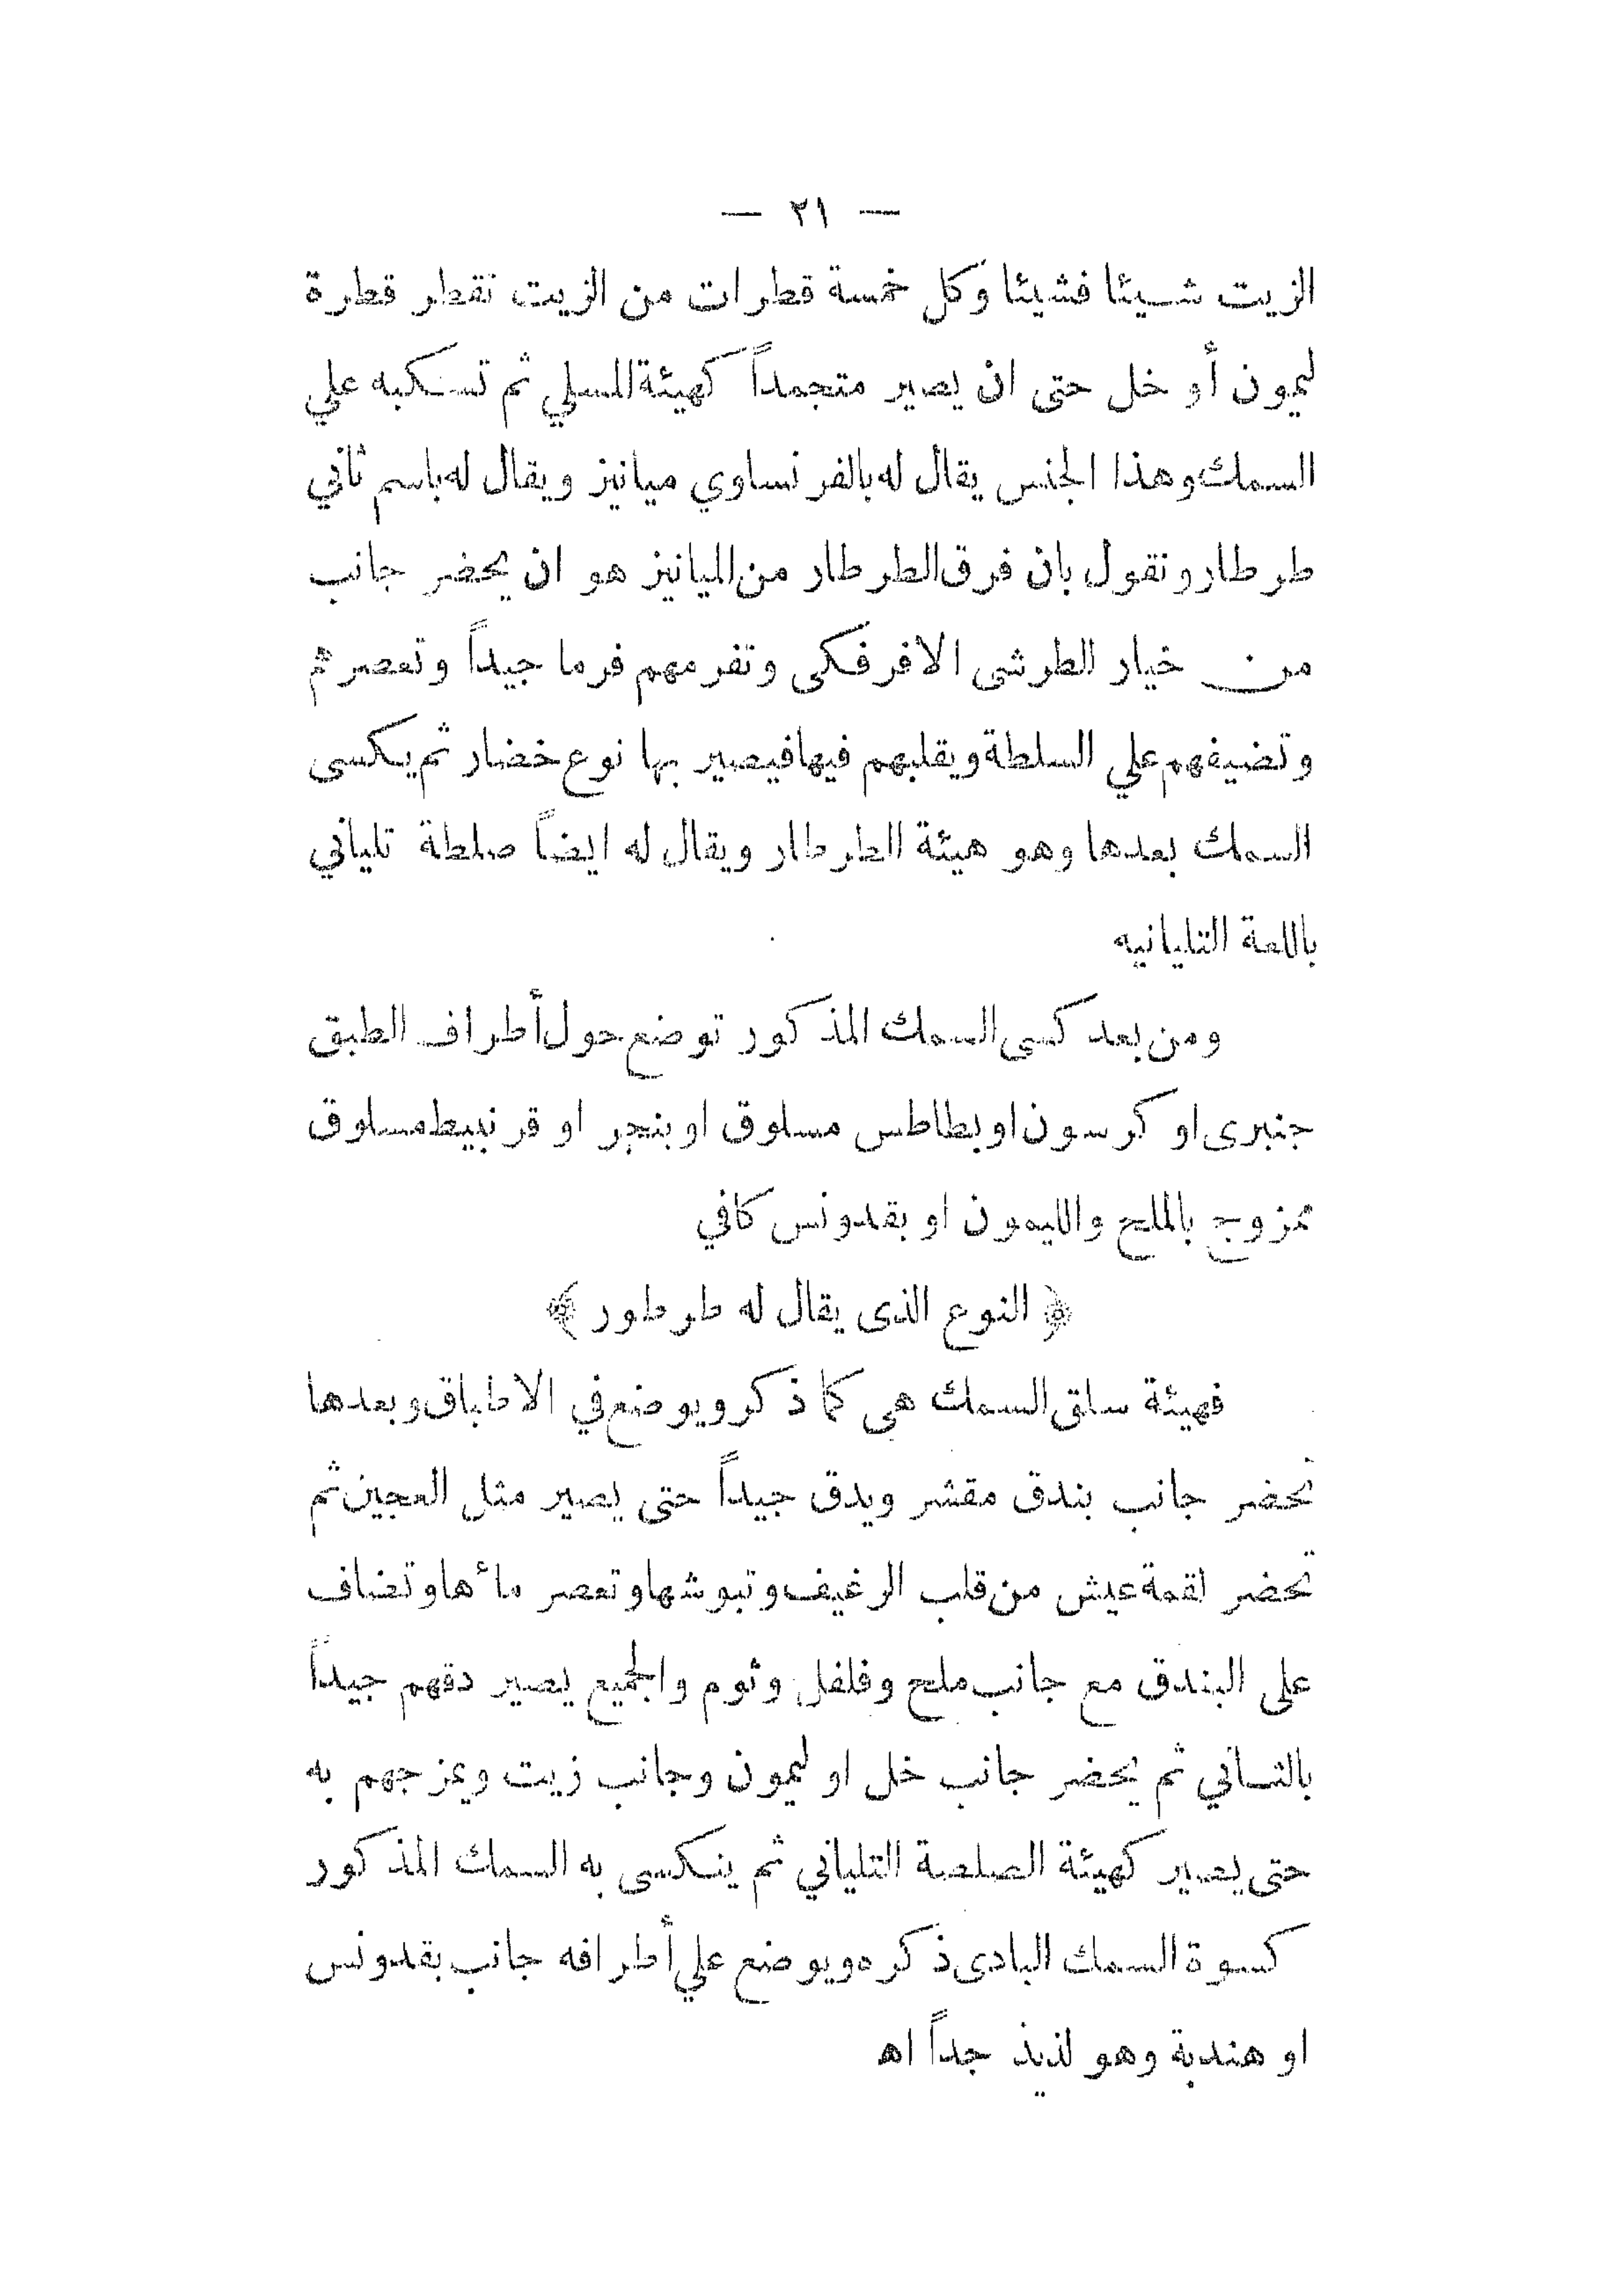 — ٢١ —
الزيت شيئا فشيئا وكل خمسة قطرات من الزيت تقطر قطرة
ليمون أو خل حتى ان يصير متجمداً كهيئة المسلي ثم تسكبه علي
السمك وهذا الجنس يقال له بالفرنساوي ميانيز ويقال له باسم ثاني
طرطار ونقول بان فرق الطرطار من الميانيز هو ان يحضر جانب
من خيار الطرشى الافرفكى وتفرمهم فرما جيداً وتعصر ثم
وتضيفهم علي السلطة ويقلبهم فيها فيصير بها نوع خضار ثم يكسى
السمك بعدها وهو هيئة الطرطار ويقال له ايضاً صلطة تلياني
باللغة التليانيه
ومن بعد كسى السمك المذكور توضع حول أطراف الطبق
جنبرى او كرسون او بطاطس مسلوق او بنجر او قرنبيط مسلوق
ممزوج بالملح والليمون او بقدونس كافي
﴿ النوع الذى يقال له طرطور ﴾
فهيئة سلق السمك هى كما ذكر ويوضع في الاطباق وبعدها
تحضر جانب بندق مقشر ويدق جيداً حتى يصير مثل العجين ثم
تحضر لقمة عيش من قلب الرغيف وتبوشها وتعصر مائها وتضاف
على البندق مع جانب ملح وفلفل وثوم والجميع يصير دقهم جيداً
بالتساني ثم يحضر جانب خل او ليمون وجانب زيت ويمزجهم به
حتى يصير كهيئة الصلصة التلياني ثم ينكسى به السمك المذكور
كسوة السمك البادى ذكره ويوضع علي أطرافه جانب بقدونس
او هندبة وهو لذيذ جداً اه